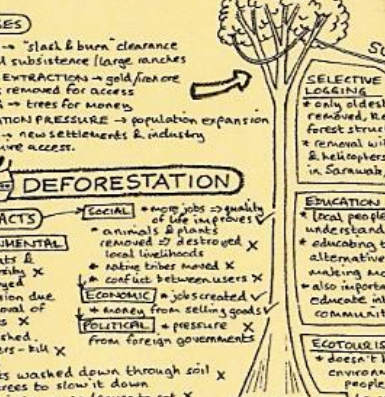 SES
→ "slash & burn" clearance
subsistence / large ranches
EXTRACTION → gold/iron ore
removed for access
→ trees for money
ATION PRESSURE → population expansion
→ new settlements & industry
ire access.
DEFORESTATION
ACTS
SOCIAL * more jobs => quality
of life improves ✓
* animals & plants
removed => destroyed x
local livelihoods
* native tribes moved x
* conflict between users x
ECONOMIC * jobs created ✓
* money from selling goods ✓
POLITICAL * pressure x
from foreign governments
NMENTAL
ts &
x
yed
sion due
oval of
s x
shed.
ers - kill x
ts washed down through soil x
trees to slow it down
SELECTIVE
LOGGING
* only oldes
removed, ke
forest struc
* removal wi
& helicopters
in Sarawak,
EDUCATION
* local people
understand
* educating
alternative
making mo
* also importa
educate in
communit
ECOTOURIS
* doesn't
environm
people